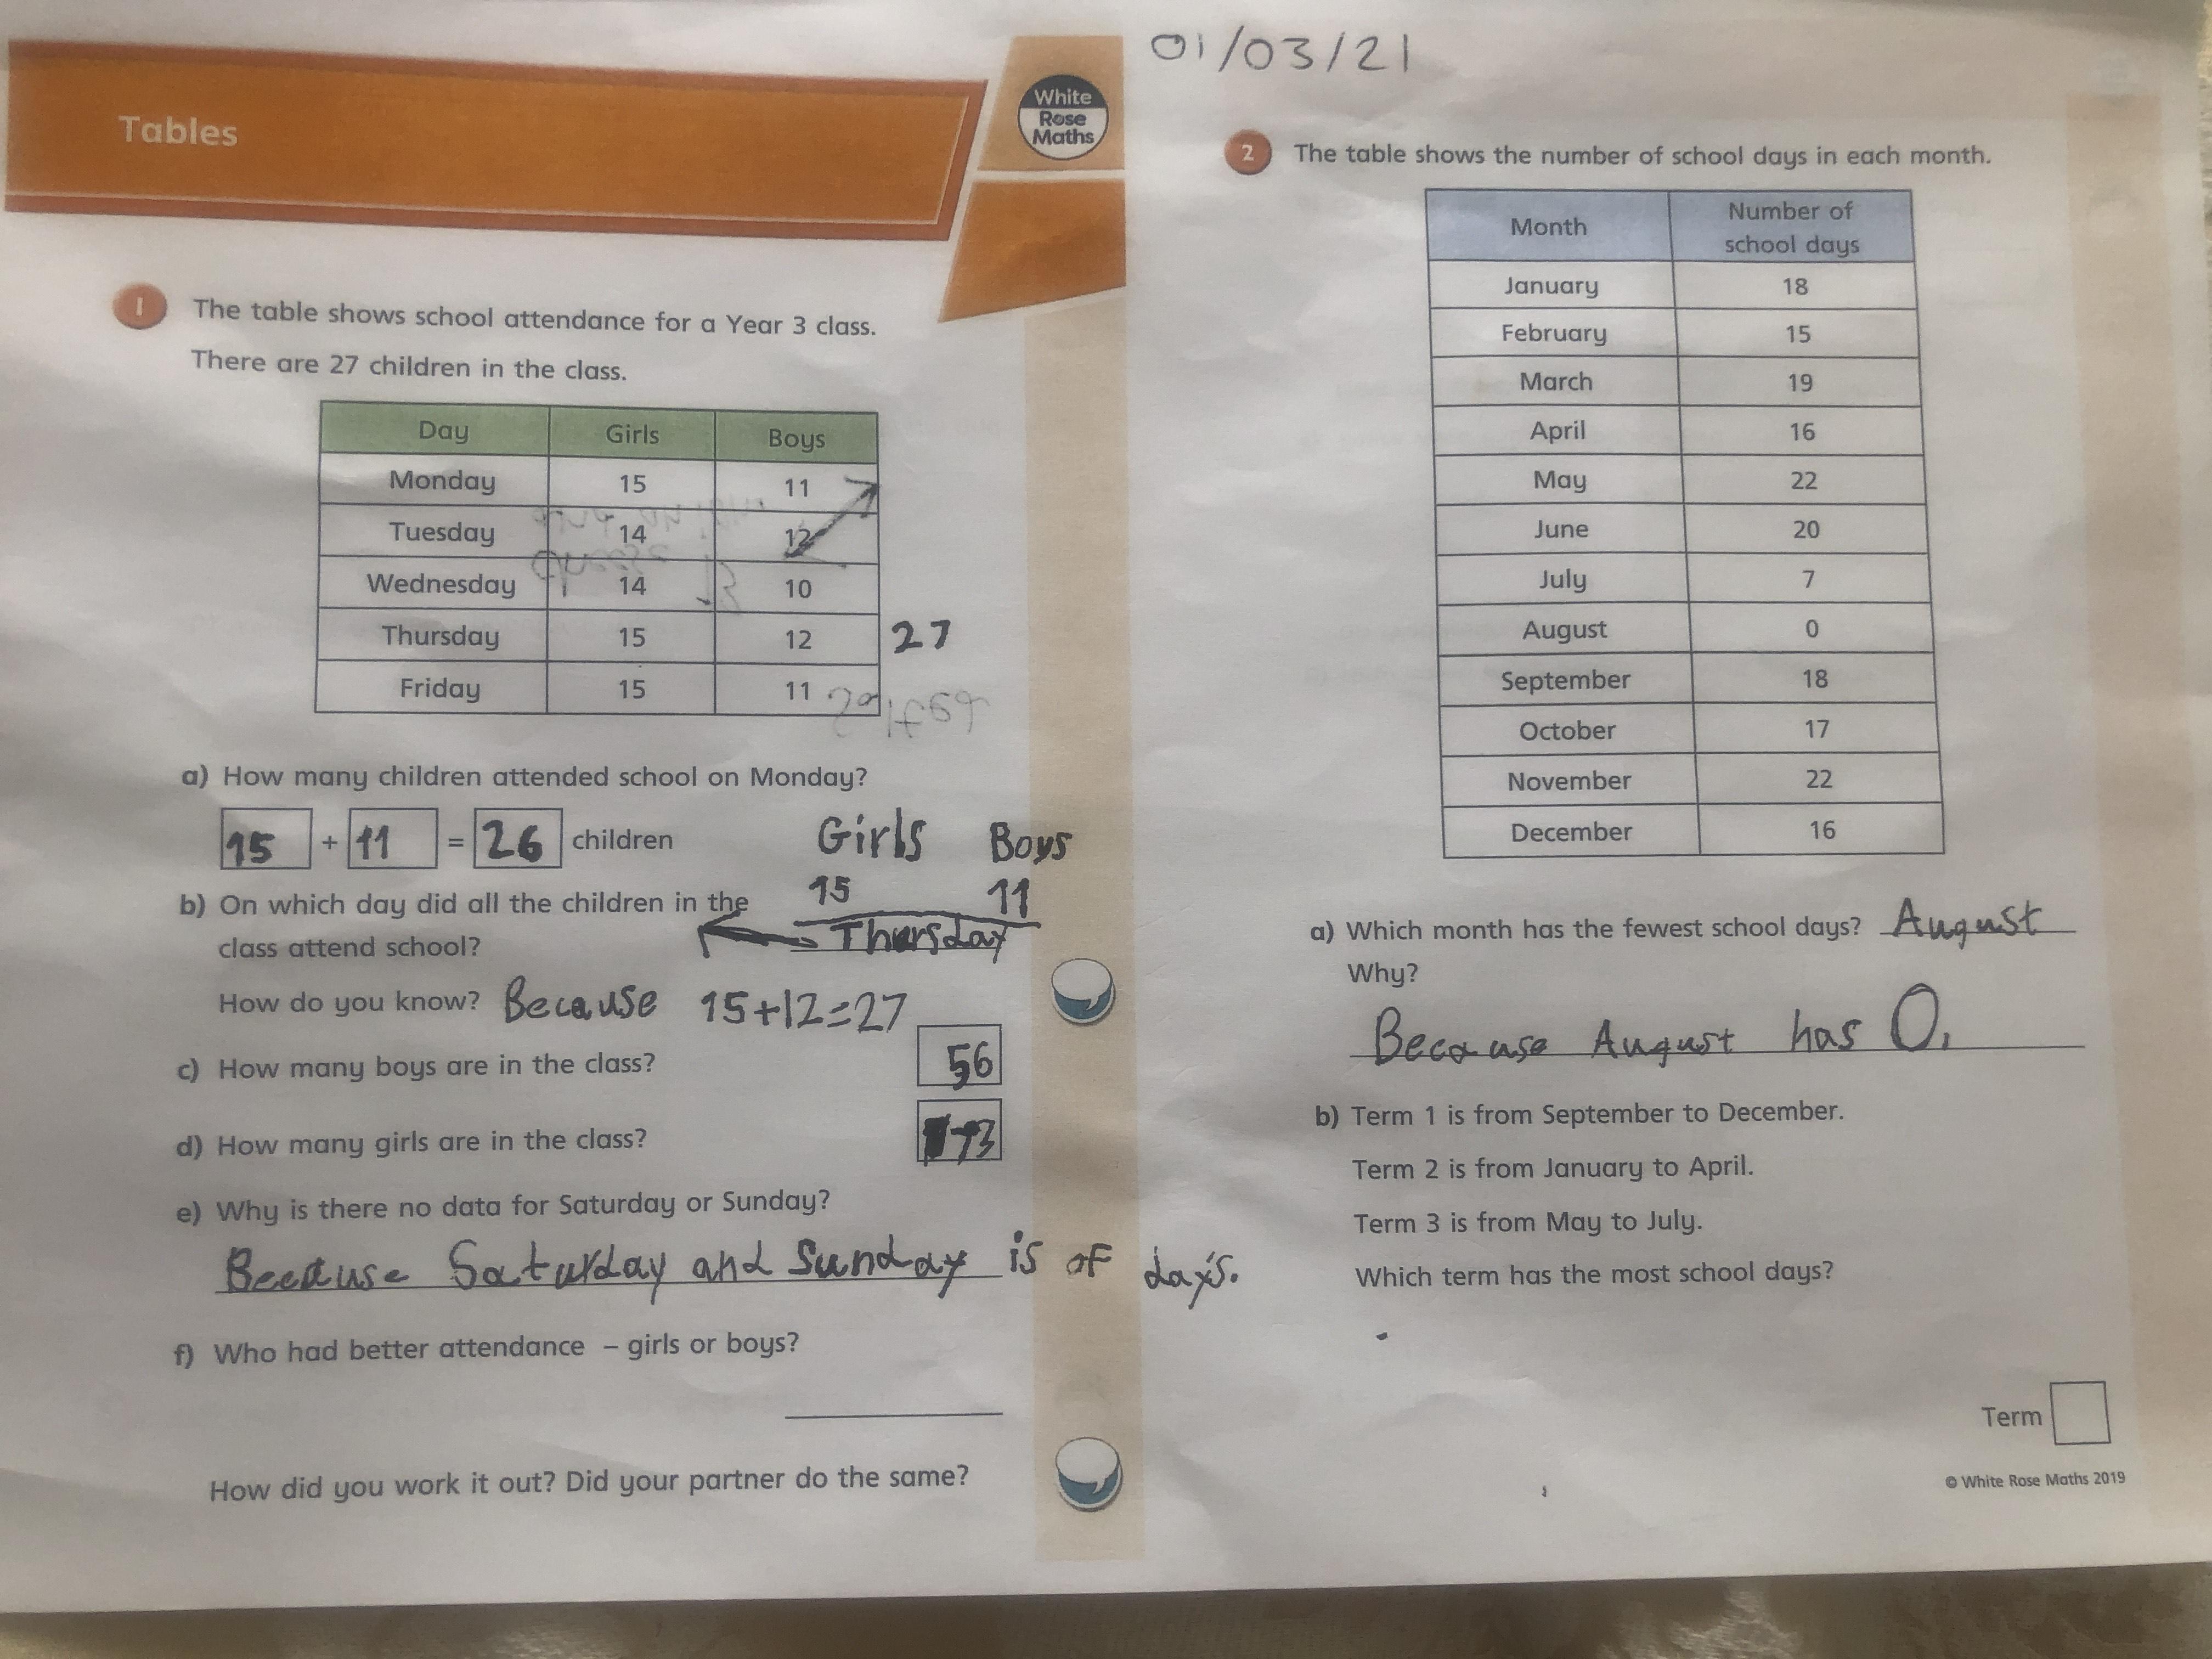 01/03/21
Tables
White
Rose
Maths
1 The table shows school attendance for a Year 3 class.
There are 27 children in the class.
Day Girls Boys
Monday 15 11
Tuesday 14 12
Wednesday 14 10
Thursday 15 12 27
Friday 15 11
a) How many children attended school on Monday?
15 + 11 = 26 children
Girls Boys
15 11
b) On which day did all the children in the
class attend school? Thursday
How do you know? Because 15+12=27
c) How many boys are in the class? 56
d) How many girls are in the class? 73
e) Why is there no data for Saturday or Sunday?
Because Saturday and Sunday is of day's.
f) Who had better attendance – girls or boys?
How did you work it out? Did your partner do the same?
2 The table shows the number of school days in each month.
Month Number of
school days
January 18
February 15
March 19
April 16
May 22
June 20
July 7
August 0
September 18
October 17
November 22
December 16
a) Which month has the fewest school days? August
Why?
Because August has 0.
b) Term 1 is from September to December.
Term 2 is from January to April.
Term 3 is from May to July.
Which term has the most school days?
Term
© White Rose Maths 2019